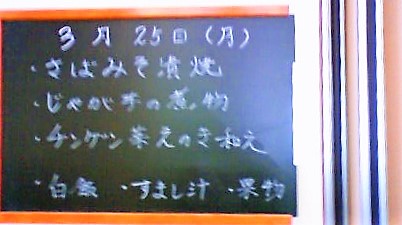 3月25日(月)
・さばみそ漬焼
・じゃが芋の煮物
・チンゲン菜えのき和え
・白飯 ・すまし汁 ・果物